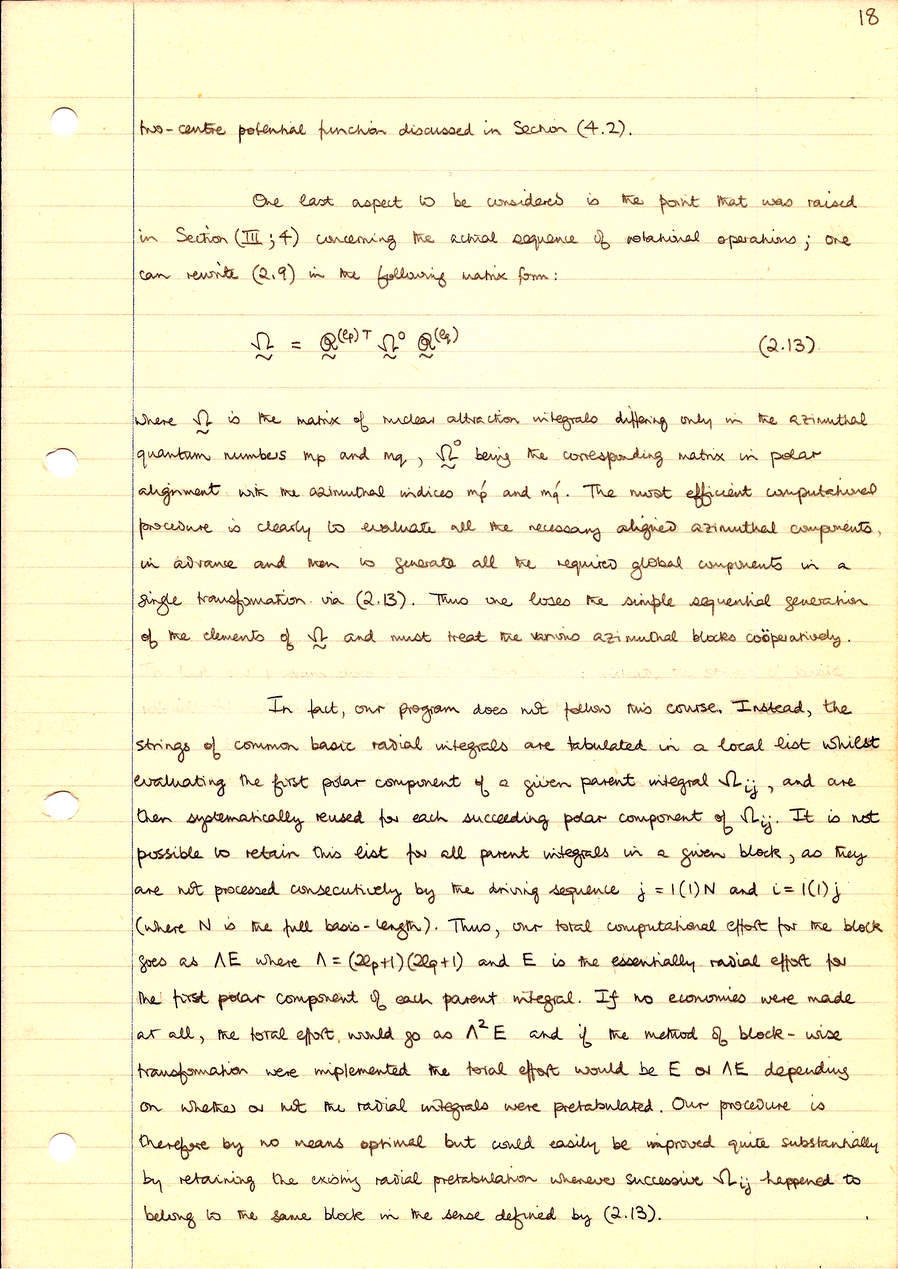 18
two-centre potential function discussed in Section (4.2).
One last aspect to be considered is the point that was raised
in Section (III ; 4) concerning the actual sequence of rotational operations; one
can rewrite (2.9) in the following matrix form:
Ω = R^(ℓp)T Ω° R^(ℓq) (2.13)
where Ω is the matrix of nuclear attraction integrals differing only in the azimuthal
quantum numbers mp and mq, Ω° being the corresponding matrix in polar
alignment with the azimuthal indices mp′ and mq′. The most efficient computational
procedure is clearly to evaluate all the necessary aligned azimuthal components,
in advance and then to generate all the required global components in a
single transformation via (2.13). Thus one loses the simple sequential generation
of the elements of Ω and must treat the various azimuthal blocks coöperatively.
In fact, our program does not follow this course. Instead, the
strings of common basic radial integrals are tabulated in a local list whilst
evaluating the first polar component of a given parent integral Ωij, and are
then systematically reused for each succeeding polar component of Ωij. It is not
possible to retain this list for all parent integrals in a given block, as they
are not processed consecutively by the driving sequence j = 1(1)N and i = 1(1)j
(where N is the full basis-length). Thus, our total computational effort for the block
goes as ΛE where Λ = (2ℓp+1)(2ℓq+1) and E is the essentially radial effort for
the first polar component of each parent integral. If no economies were made
at all, the total effort would go as Λ²E and if the method of block-wise
transformation were implemented the total effort would be E or ΛE depending
on whether or not the radial integrals were pretabulated. Our procedure is
therefore by no means optimal but could easily be improved quite substantially
by retaining the existing radial pretabulation whenever successive Ωij happened to
belong to the same block in the sense defined by (2.13).